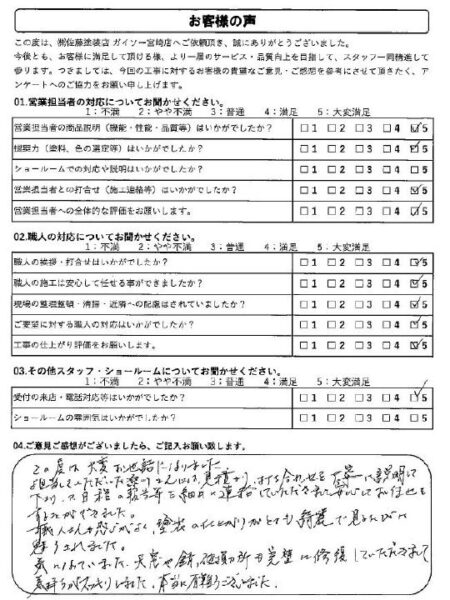 お客様の声
この度は、㈱佐藤塗装店 ガイソー宮崎店へご依頼頂き、誠にありがとうございました。
今後とも、お客様に満足して頂ける様、より一層のサービス・品質向上を目指して、スタッフ一同精進して
参ります。つきましては、今回の工事に対するお客様の貴重なご意見・ご感想を参考にさせて頂きたく、ア
ンケートへのご協力をお願い申し上げます。
01.営業担当者の対応についてお聞かせください。
1:不満 2:やや不満 3:普通 4:満足 5:大変満足
営業担当者の商品説明（機能・性能・品質等）はいかがでしたか？ □1 □2 □3 □4 ☑5
提案力（塗料、色の選定等）はいかがでしたか？ □1 □2 □3 □4 ☑5
ショールームでの対応や説明はいかがでしたか？ □1 □2 □3 □4 □5
営業担当者との打合せ（施工連絡等）はいかがでしたか？ □1 □2 □3 □4 ☑5
営業担当者への全体的な評価をお願いします。 □1 □2 □3 □4 ☑5
02.職人の対応についてお聞かせください。
1:不満 2:やや不満 3:普通 4:満足 5:大変満足
職人の挨拶・打合せはいかがでしたか？ □1 □2 □3 □4 ☑5
職人の施工は安心して任せる事ができましたか？ □1 □2 □3 □4 ☑5
現場の整理整頓・清掃・近隣への配慮はされていましたか？ □1 □2 □3 □4 ☑5
ご要望に対する職人の対応はいかがでしたか？ □1 □2 □3 □4 ☑5
工事の仕上がり評価をお願いします。 □1 □2 □3 □4 ☑5
03.その他スタッフ・ショールームについてお聞かせください。
1:不満 2:やや不満 3:普通 4:満足 5:大変満足
受付の来店・電話対応等はいかがでしたか？ □1 □2 □3 □4 ☑5
ショールームの雰囲気はいかがでしたか？ □1 □2 □3 □4 □5
04.ご意見ご感想がございましたら、ご記入お願い致します。
この度は大変お世話になりました
担当していただいた さんには見積り、打ち合わせを 説明して
下さり 日程の 等を細かく連絡していただき 安心してお任せ
することができました。
職人さんも感じがよく、塗装の仕上がりがとても綺麗で見るたびに
ました。
気になっていた 天窓や 破損 所も完璧に修復していただきまして
気持ちがスッキリしました。本当に有難うございました。